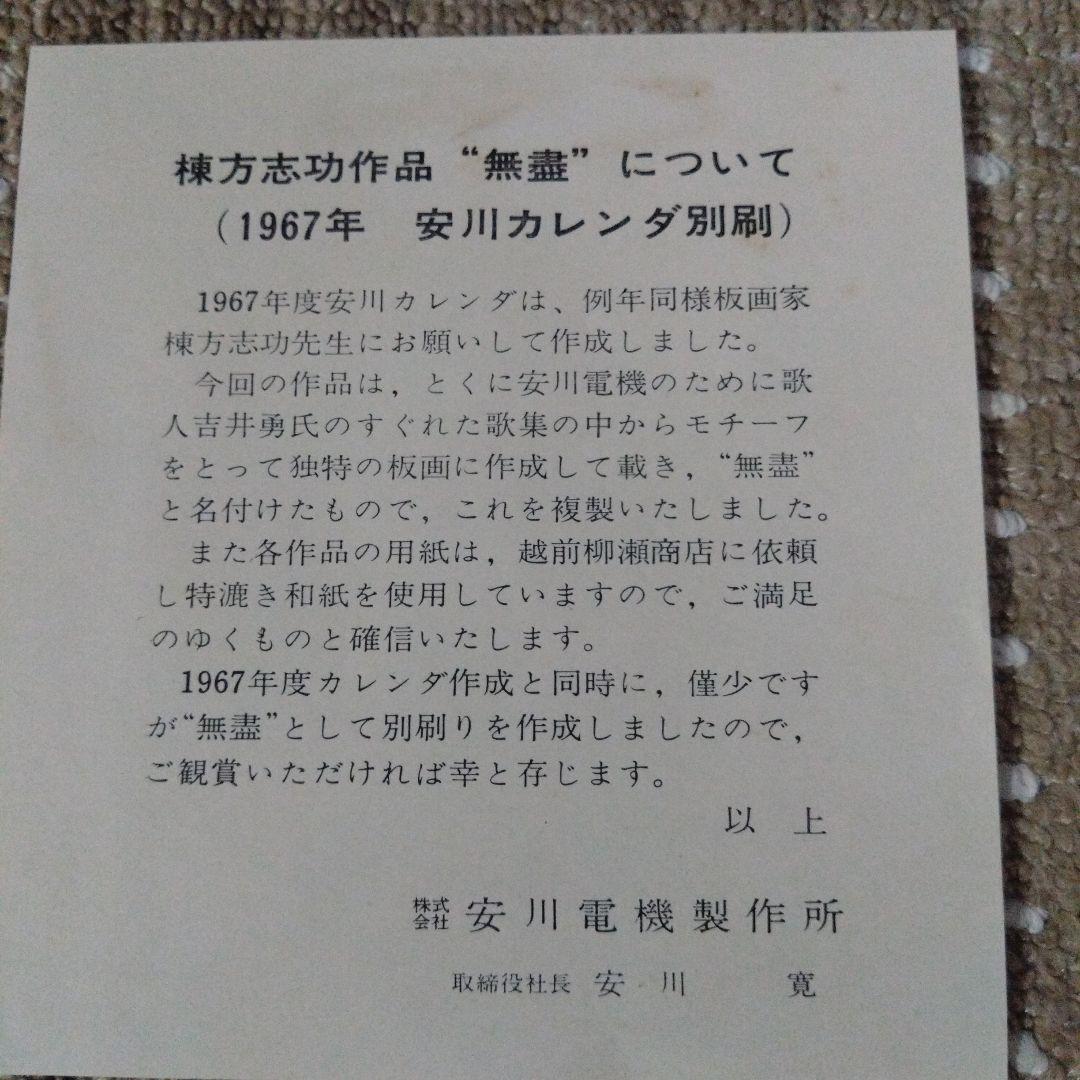 棟方志功作品“無盡”について
(1967年　安川カレンダ別刷)
1967年度安川カレンダは、例年同様板画家
棟方志功先生にお願いして作成しました。
今回の作品は，とくに安川電機のために歌
人吉井勇氏のすぐれた歌集の中からモチーフ
をとって独特の板画に作成して載き，“無盡”
と名付けたもので，これを複製いたしました。
また各作品の用紙は，越前柳瀬商店に依頼
し特漉き和紙を使用していますので，ご満足
のゆくものと確信いたします。
1967年度カレンダ作成と同時に，僅少です
が“無盡”として別刷りを作成しましたので，
ご観賞いただければ幸と存じます。
以　上
株式会社 安川電機製作所
取締役社長　安　川　　寛